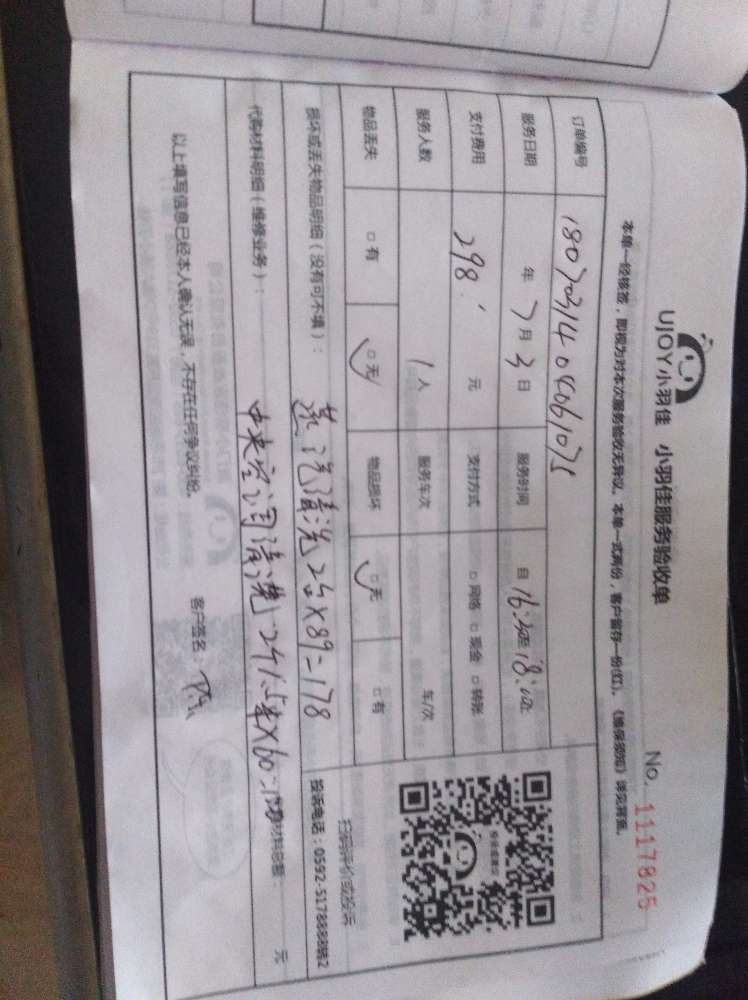 UJOY小羽佳 小羽佳服务验收单
No. 1117825
本单一经核签，即视为对本次服务验收无异议。本单一式两份，客户留存一份(红)。《维保须知》详见背面。
订单编号
服务日期 年 7 月 3 日 服务时间 自 16:30至 18:00止
支付费用 298. 元 支付方式 □ 网络 □ 现金 □ 转账
服务人数 1 人 服务车次 车/次
物品丢失 □ 有 □ 无 物品损坏 □ 无 □ 有
扫码评价或投诉
损坏或丢失物品明细（没有可不填）： 蒸汽清洗2台X89=178
投诉电话：0592-5178888转2
代购材料明细（维修业务）： 中央空调清洗 X60=120 材料总额： 元
以上填写信息已经本人确认无误，不存在任何争议纠纷。
客户签名：